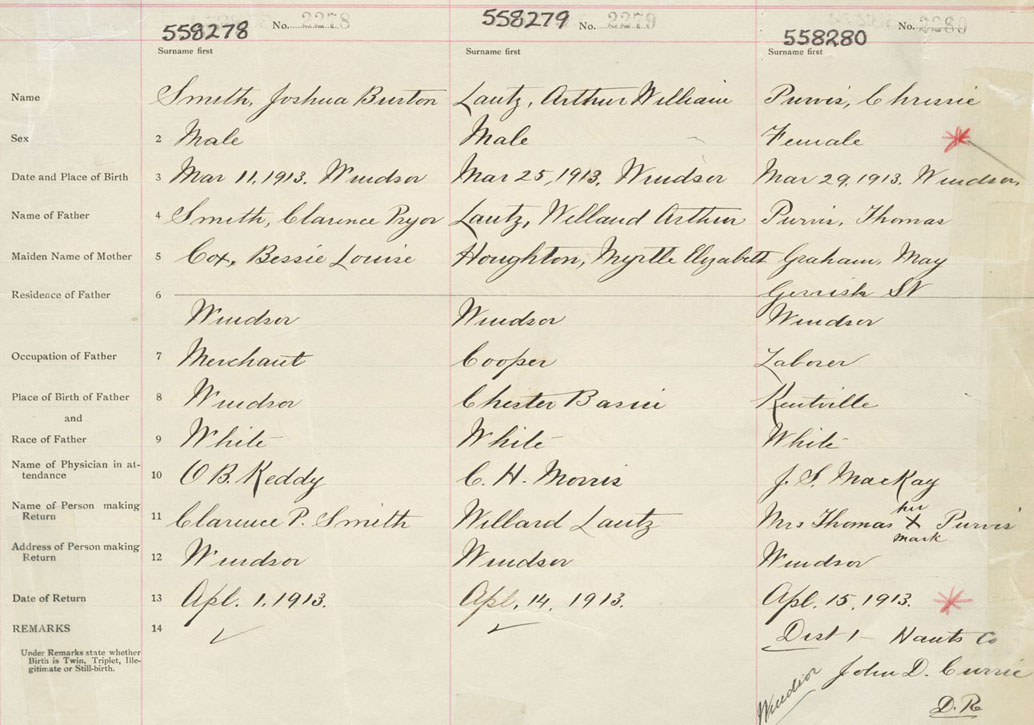 558278 No. 2278 558279 No. 2279 558280 No. 2280
Surname first Surname first Surname first
Name Smith, Joshua Burton Lautz, Arthur William Purvis, Chrissie
Sex 2 Male Male Female
Date and Place of Birth 3 Mar 11, 1913. Windsor Mar 25, 1913. Windsor Mar 29, 1913. Windsor
Name of Father 4 Smith, Clarence Pryor Lautz, Willard Arthur Purvis, Thomas
Maiden Name of Mother 5 Cox, Bessie Louise Houghton, Myrtle Elizabeth Graham, May
Residence of Father 6 Gerrish St
Windsor Windsor Windsor
Occupation of Father 7 Merchant Cooper Laborer
Place of Birth of Father 8 Windsor Chester Basin Kentville
and
Race of Father 9 White White White
Name of Physician in at-
tendance 10 O B. Keddy C. H. Morris J. S. MacKay
Name of Person making
Return 11 Clarence P. Smith Willard Lautz Mrs Thomas her X mark Purvis
Address of Person making
Return 12 Windsor Windsor Windsor
Date of Return 13 Apl. 1, 1913. Apl, 14, 1913. Apl. 15, 1913.
REMARKS 14 Dist 1 - Hants Co
Under Remarks state whether
Birth is Twin, Triplet, Ille-
gitimate or Still-birth.
Windsor John D. Currie
D. R